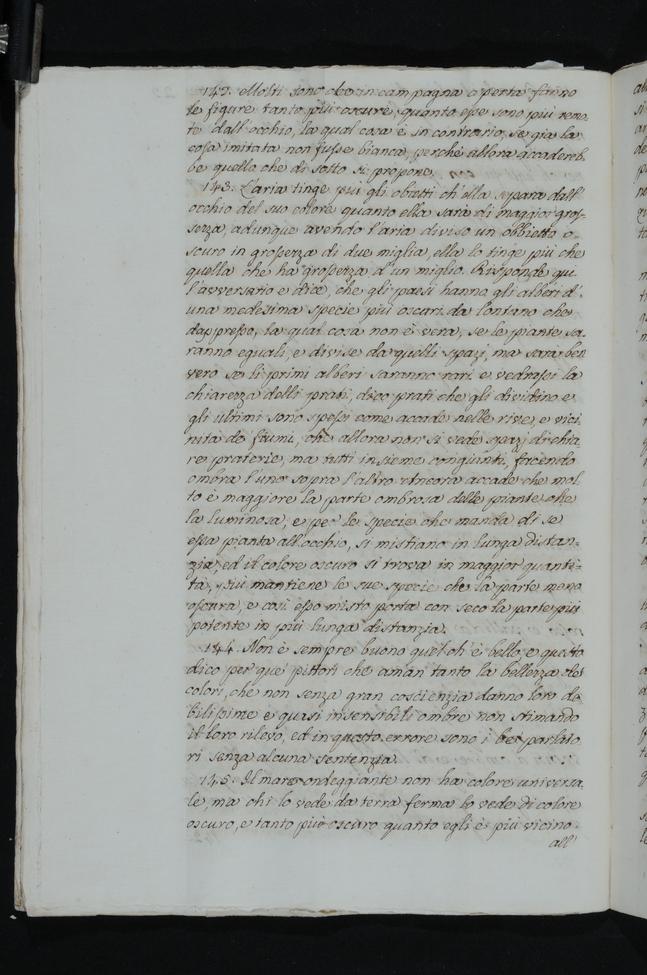 142. Molti sono che in campagna aperta fanno
le figure tanto più oscure, quanto esse sono più remo
te dall'occhio, la qual cosa è in contrario, se già la
cosa imitata non fusse bianca, perchè allora accadereb
be quello che di sotto si propone.
143. L'aria tinge più gli obietti ch'ella separa dall'
occhio del suo colore quanto ella sarà di maggior gros=
sezza, adunque avendo l'aria diviso un obbietto o=
scuro in grossezza di due miglia, ella lo tinge più che
quella che ha grossezza d'un miglio. Risponde qui
l'avversario e dice, che gli paesi hanno gli alberi d'
una medesima specie più oscuri da lontano che
dappresso, la qual cosa non è vera, se le piante sa
ranno eguali, e divise da quelli spazi, ma sarà ben
vero se li primi alberi saranno rari e vedrassi la
chiarezza delli prati, dico prati che gli dividino e
gli ultimi sono spessi come accade nelle rive, e vici
nità de fiumi, che allora non si vede spazj di chia
re praterie, ma tutti insieme congiunti, facendo
ombra l'uno sopra l'altro. Ancora accade che mol
to è maggiore la parte ombrosa delle piante che
la luminosa, e per le specie che manda di se
essa pianta all'occhio, si mistiano in lunga distan=
zia, ed il colore oscuro si trova in maggior quanti=
tà, più mantiene le sue specie che la parte meno
oscura, e così esso misto porta con seco la parte più
potente in più lunga distanzia.
144. Non è sempre buono quel ch'è bello, e questo
dico per que' pittori che aman tanto la bellezza de'
colori, che non senza gran coscienzia danno loro de
bilissime e quasi insensibili ombre non stimando
il loro rilevo, ed in questo errore sono i be' parlato
ri senza alcuna sentenzia.
145. Il mare ondeggiante non ha colore universa
le, ma chi lo vede da terra ferma lo vede di colore
oscuro, e tanto più oscuro quanto egli è più vicino
all'